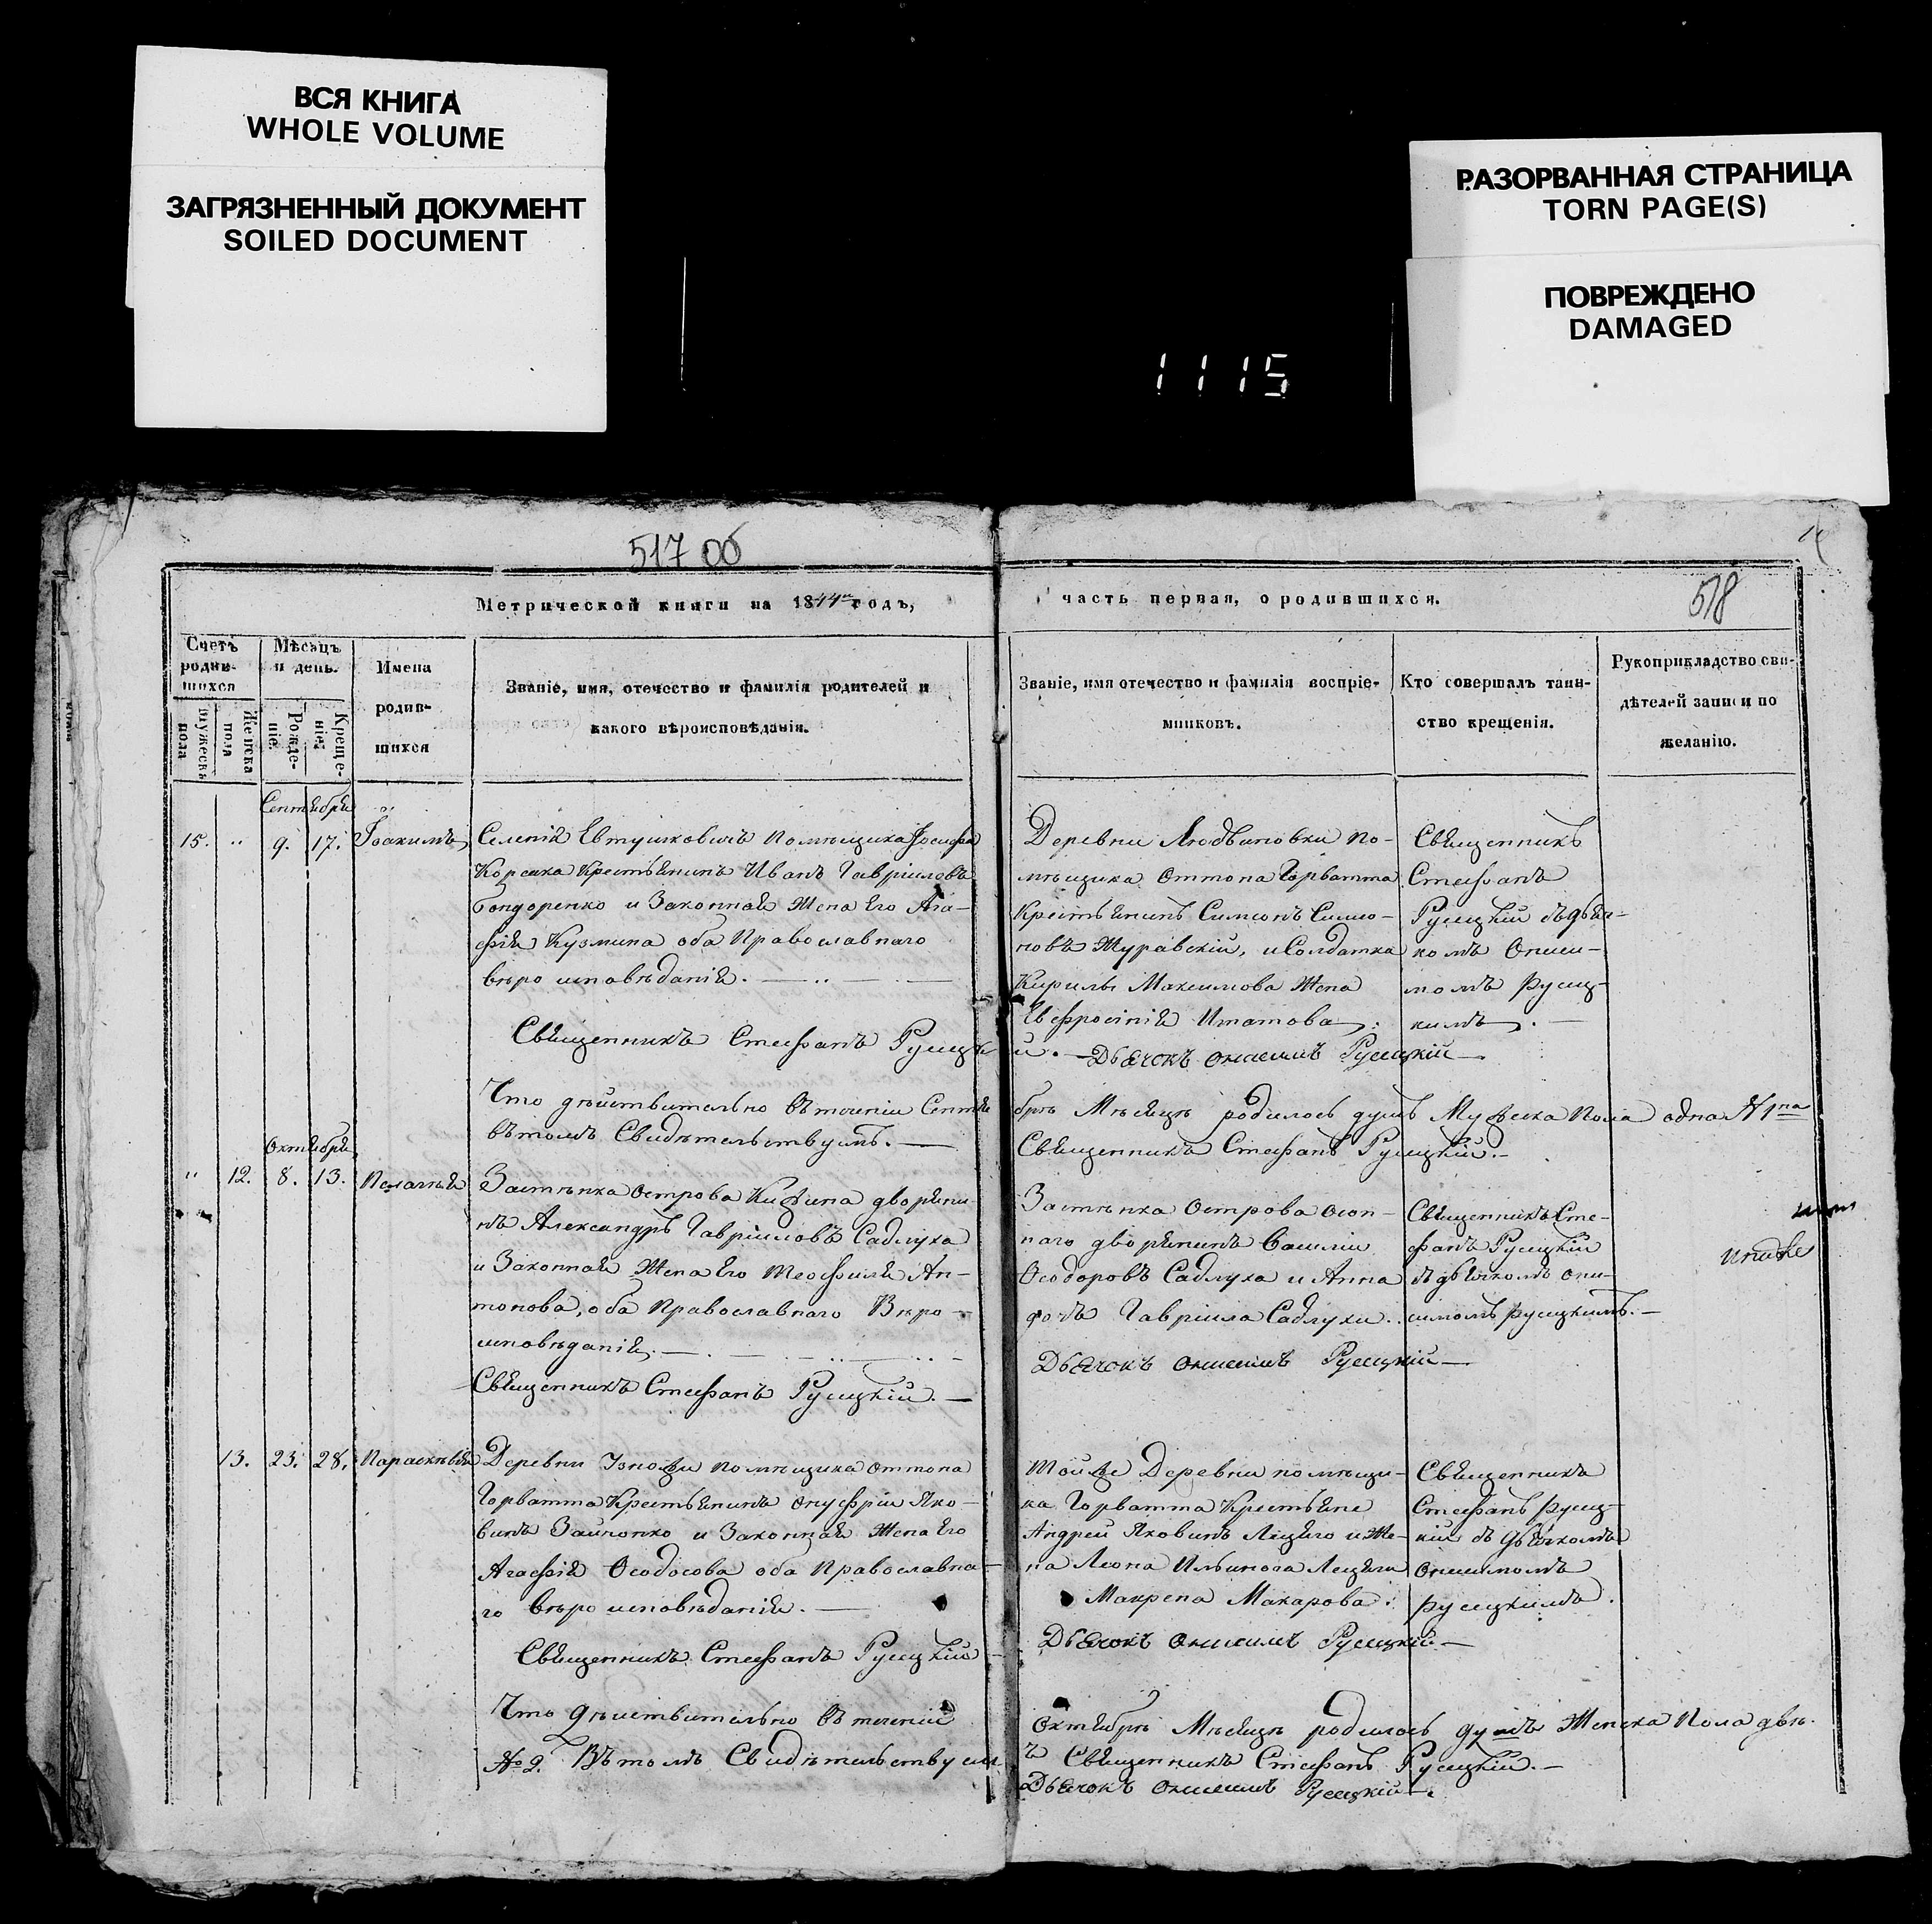 ВСЯ КНИГА
WHOLE VOLUME
ЗАГРЯЗНЕННЫЙ ДОКУМЕНТ
SOILED DOCUMENT
РАЗОРВАННАЯ СТРАНИЦА
TORN PAGE(S)
ПОВРЕЖДЕНО
DAMAGED
1115
517 об
518
Метрической книги на 1844й годъ,
часть первая, о родившихся.
Счетъ родив-шихся
Мужеска пола
Женска пола
Мѣсяцъ и день.
Рожде-нiе.
Креще-нiе.
Имена
родив-
шихся
Званiе, имя, отечество и фамилiя родителей и
какого вѣроисповѣданiя.
Званiе, имя отечество и фамилiя воспрiе-
мниковъ.
Кто совершалъ таин-
ство крещенiя.
Рукоприкладство сви-
дѣтелей записи по
желанiю.
Сентября
15. " 9. 17. Iоакимъ
Помѣщика Iосифа
Корсака Крестьянинъ Иванъ Гаврiиловъ
Бондоренко и Законная Жена Его Ага-
фiя Кузмина оба Православнаго
вѣро исповѣданiя.
Священникъ Стефанъ Русецкiй.
Деревни Людвиновки по-
мѣщика Оттона Горватта
Крестьянинъ Симеонъ Симо-
новъ Журавскiй, и Солдатка
Кирилы Максимова Жена
Евфросинiя Игнатова.
Дьячокъ Онисимъ Русецкiй
Священникъ
Стефанъ
Русецкiй съ дьяч-
комъ Ониси-
момъ Русец-
кимъ.
Что дѣйствительно въ теченiи Сентя
брѣ Мѣсяцѣ родилось душъ Мужеска Пола одна № 1на
въ томъ Свидѣтельствуемъ.
Священникъ Стефанъ Русецкiй.
Октября
" 12. 8. 13. Пелагiя
Застѣнка Острова дворяни-
нъ Александръ Гаврiиловъ Садлуха
и Законная Жена Его Теофиля Ан-
тонова, оба Православнаго Вѣро
исповѣданiя.
Священникъ Стефанъ Русецкiй.
Застѣнка Острова
дворянинъ Василiй
Ѳеодоровъ Садлуха и Анна
дочь Гаврiила Садлухи.
Дьячокъ Онисимъ Русецкiй
Священникъ Сте-
фанъ Русецкiй
съ дьячкомъ Они-
симомъ Русецкимъ.
13. 23. 28. Параскѣвiя
Деревни Узножи помѣщика Оттона
Горватта Крестьянинъ Онуфрiй Яко-
винъ и Законная Жена Его
Агафiя Ѳеодосова оба Православна-
го вѣро исповѣданiя.
Священникъ Стефанъ Русецкiй
Той же Деревни помѣщи-
ка Горватта Крестьяне
Андрей Яковинъ и Же-
на Ильинога
Макрена Макарова.
Дьячокъ Онисимъ Русецкiй.
Священникъ
Стефанъ Русец-
кiй съ дьячкомъ
Онисимомъ
Русецкимъ.
Что дѣйствительно въ теченiи
Октябрѣ Мѣсяцѣ родилось душъ Женска Пола двѣ.
№ 2. Въ томъ Свидѣтельствуем
ъ Священникъ Стефанъ Русецкiй.
Дьячокъ Онисимъ Русецкiй.